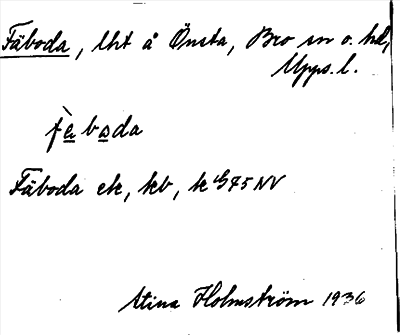 Fäboda, lht å Önsta, Bro sn o. hd,
Upps. l.
fὲboda
Fäboda ek, kb, k
Stina Holmström 1936